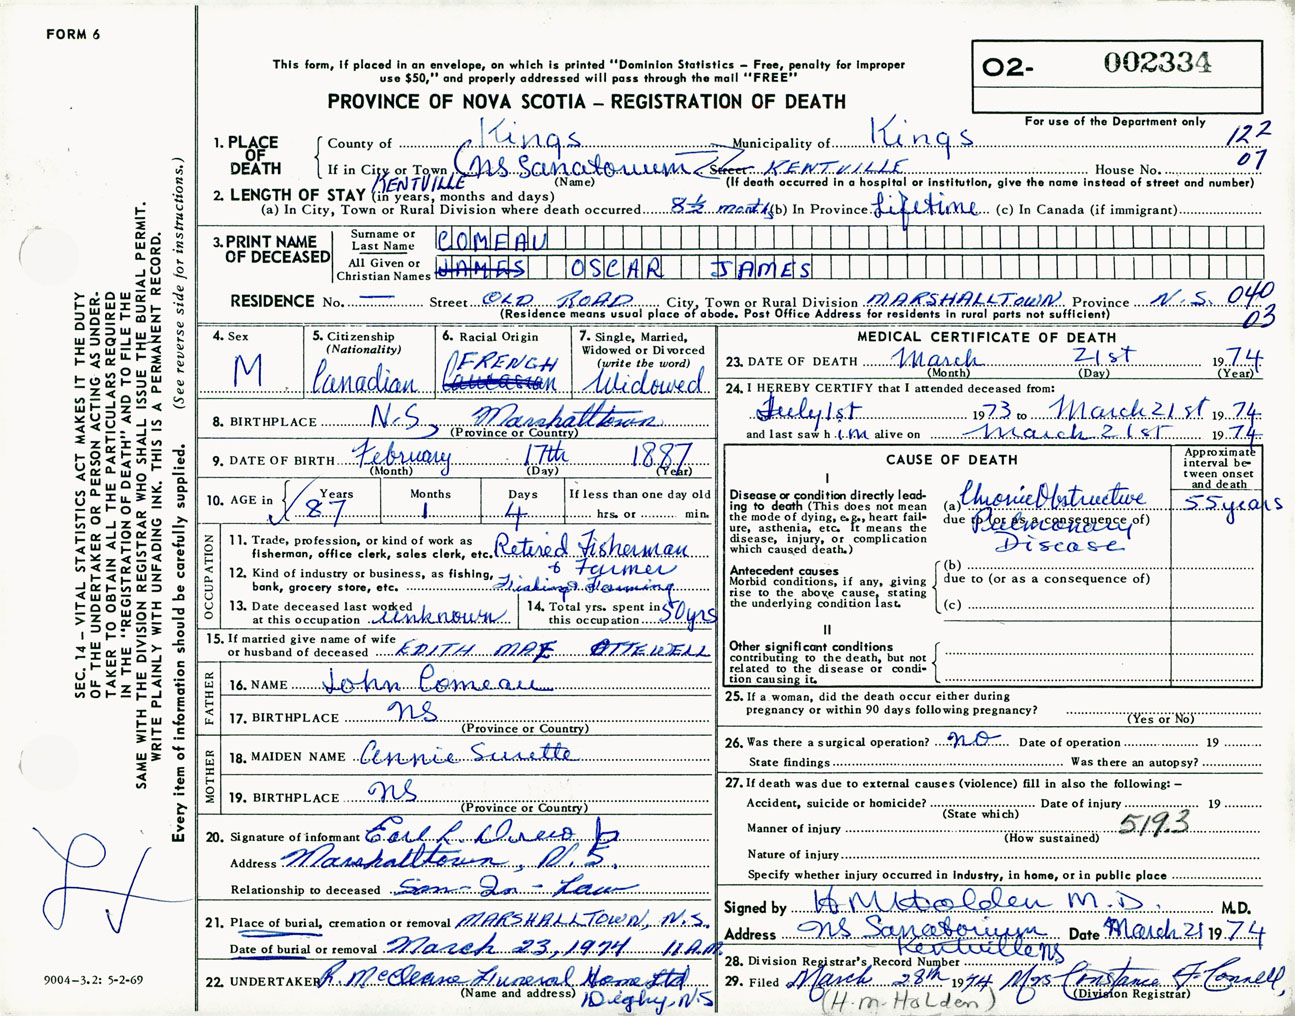 FORM 6
This form, if placed in an envelope, on which is printed "Dominion Statistics – Free, penalty for improper
use $50," and properly addressed will pass through the mail "FREE"
O2- 002334
PROVINCE OF NOVA SCOTIA – REGISTRATION OF DEATH
For use of the Department only
122
07
1. PLACE OF DEATH
County of Kings Municipality of Kings
If in City or Town KENTVILLE (NS Sanatorium Street KENTVILLE House No.
(Name) (If death occurred in a hospital or institution, give the name instead of street and number)
2. LENGTH OF STAY (in years, months and days)
(a) In City, Town or Rural Division where death occurred 8½ months (b) In Province Lifetime (c) In Canada (if immigrant)
3. PRINT NAME OF DECEASED
Surname or Last Name COMEAU
All Given or Christian Names JAMES OSCAR JAMES
RESIDENCE No. — Street OLD ROAD City, Town or Rural Division MARSHALLTOWN Province N.S. 040
03
(Residence means usual place of abode. Post Office Address for residents in rural parts not sufficient)
4. Sex M
5. Citizenship (Nationality) Canadian
6. Racial Origin FRENCH Caucasian
7. Single, Married, Widowed or Divorced (write the word) Widowed
8. BIRTHPLACE N.S, Marshalltown
(Province or Country)
9. DATE OF BIRTH February 17th 1887
(Month) (Day) (Year)
10. AGE in Years 87 Months 1 Days 4 If less than one day old hrs. or min.
OCCUPATION
11. Trade, profession, or kind of work as fisherman, office clerk, sales clerk, etc. Retired Fisherman
& Farmer
12. Kind of industry or business, as fishing, bank, grocery store, etc. Fishing & Farming
13. Date deceased last worked at this occupation unknown
14. Total yrs. spent in this occupation 50 yrs
15. If married give name of wife or husband of deceased EDITH MAE OTTEWELL
FATHER
16. NAME John Comeau
17. BIRTHPLACE NS
(Province or Country)
MOTHER
18. MAIDEN NAME Annie Surette
19. BIRTHPLACE NS
(Province or Country)
20. Signature of informant Earl L.
Address Marshalltown, N.S.
Relationship to deceased Son-In-Law
21. Place of burial, cremation or removal MARSHALLTOWN, N.S.
Date of burial or removal March 23, 1974 11 A.M.
22. UNDERTAKER R. McCleave Funeral Home Ltd
(Name and address) Digby, N.S
MEDICAL CERTIFICATE OF DEATH
23. DATE OF DEATH March 21st 1974
(Month) (Day) (Year)
24. I HEREBY CERTIFY that I attended deceased from:
July 1st 1973 to March 21st 1974
and last saw him alive on March 21st 1974
CAUSE OF DEATH
Approximate interval between onset and death
I
Disease or condition directly leading to death (This does not mean the mode of dying, e.g., heart failure, asthenia, etc. it means the disease, injury, or complication which caused death.)
(a) Chronic Obstructive 55 years
due to (or as a consequence of)
Pulmonary
Disease
Antecedent causes
Morbid conditions, if any, giving rise to the above cause, stating the underlying condition last.
(b)
due to (or as a consequence of)
(c)
II
Other significant conditions
contributing to the death, but not related to the disease or condition causing it.
25. If a woman, did the death occur either during
pregnancy or within 90 days following pregnancy?
(Yes or No)
26. Was there a surgical operation? no Date of operation 19
State findings Was there an autopsy?
27. If death was due to external causes (violence) fill in also the following: –
Accident, suicide or homicide? Date of injury 19
(State which)
Manner of injury 519.3
(How sustained)
Nature of injury
Specify whether injury occurred in industry, in home, or in public place
Signed by H M Holden M.D. M.D.
Address NS Sanatorium Date March 21 1974
Kentville NS
28. Division Registrar's Record Number
29. Filed March 28th 1974 Mrs Constance F Connell,
(Division Registrar)
(H.M. Holden)
SEC. 14 – VITAL STATISTICS ACT MAKES IT THE DUTY
OF THE UNDERTAKER OR PERSON ACTING AS UNDER-
TAKER TO OBTAIN ALL THE PARTICULARS REQUIRED
IN THE "REGISTRATION OF DEATH" AND TO FILE THE
SAME WITH THE DIVISION REGISTRAR WHO SHALL ISSUE THE BURIAL PERMIT.
WRITE PLAINLY WITH UNFADING INK. THIS IS A PERMANENT RECORD.
Every item of information should be carefully supplied. (See reverse side for instructions.)
9004–3.2: 5-2-69